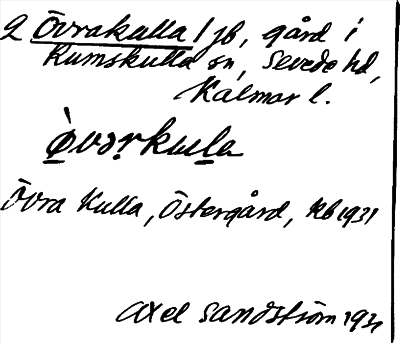 2 Övrakulla 1 jb, gård i
Rumskulla sn, Sevede hd,
Kalmar l.
övərkula
Övra Kulla, Östergård, Kb 1931
Axel Sandström 1931